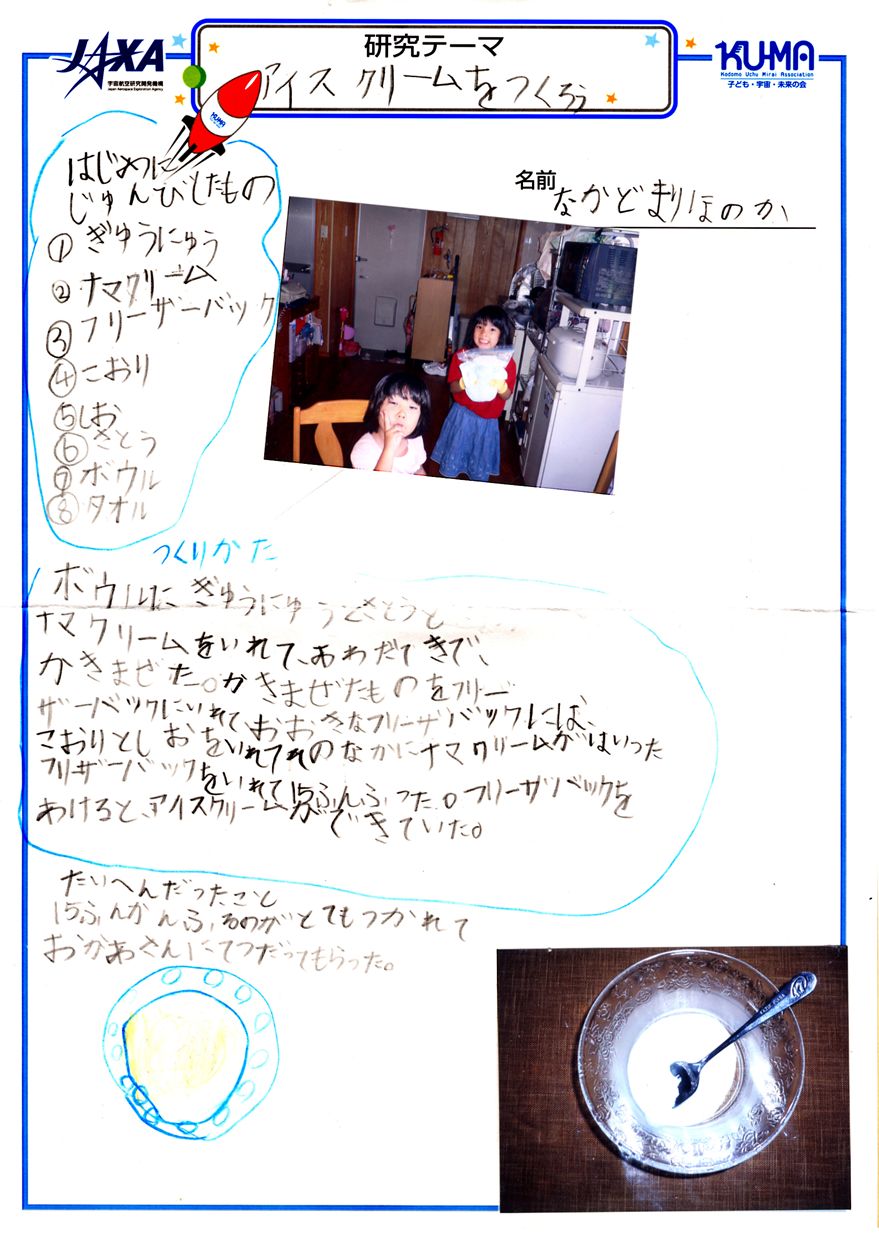 JAXA
宇宙航空研究開発機構
Japan Aerospace Exploration Agency
研究テーマ
アイスクリームをつくろう
KU-MA
Kodomo Uchu Mirai Association
子ども・宇宙・未来の会
KUMA
名前 なかどまりほのか
はじめに
じゅんびしたもの
① ぎゅうにゅう
② ナマクリーム
③ フリーザーバック
④ こおり
⑤ しお
⑥ さとう
⑦ ボウル
⑧ タオル
つくりかた
ボウルに ぎゅうにゅうとさとうと
ナマクリームをいれて、あわだてきで、
かきまぜた。かきまぜたものをフリー
ザーバックにいれて、おおきなフリーザバックには、
こおりとしおをいれてそのなかにナマクリームがはいった
フリザーバックをいれて15ふんふった。フリーザバックを
あけると、アイスクリームができていた。
たいへんだったこと
15ふんかんふるのがとてもつかれて
おかあさんにてつだってもらった。